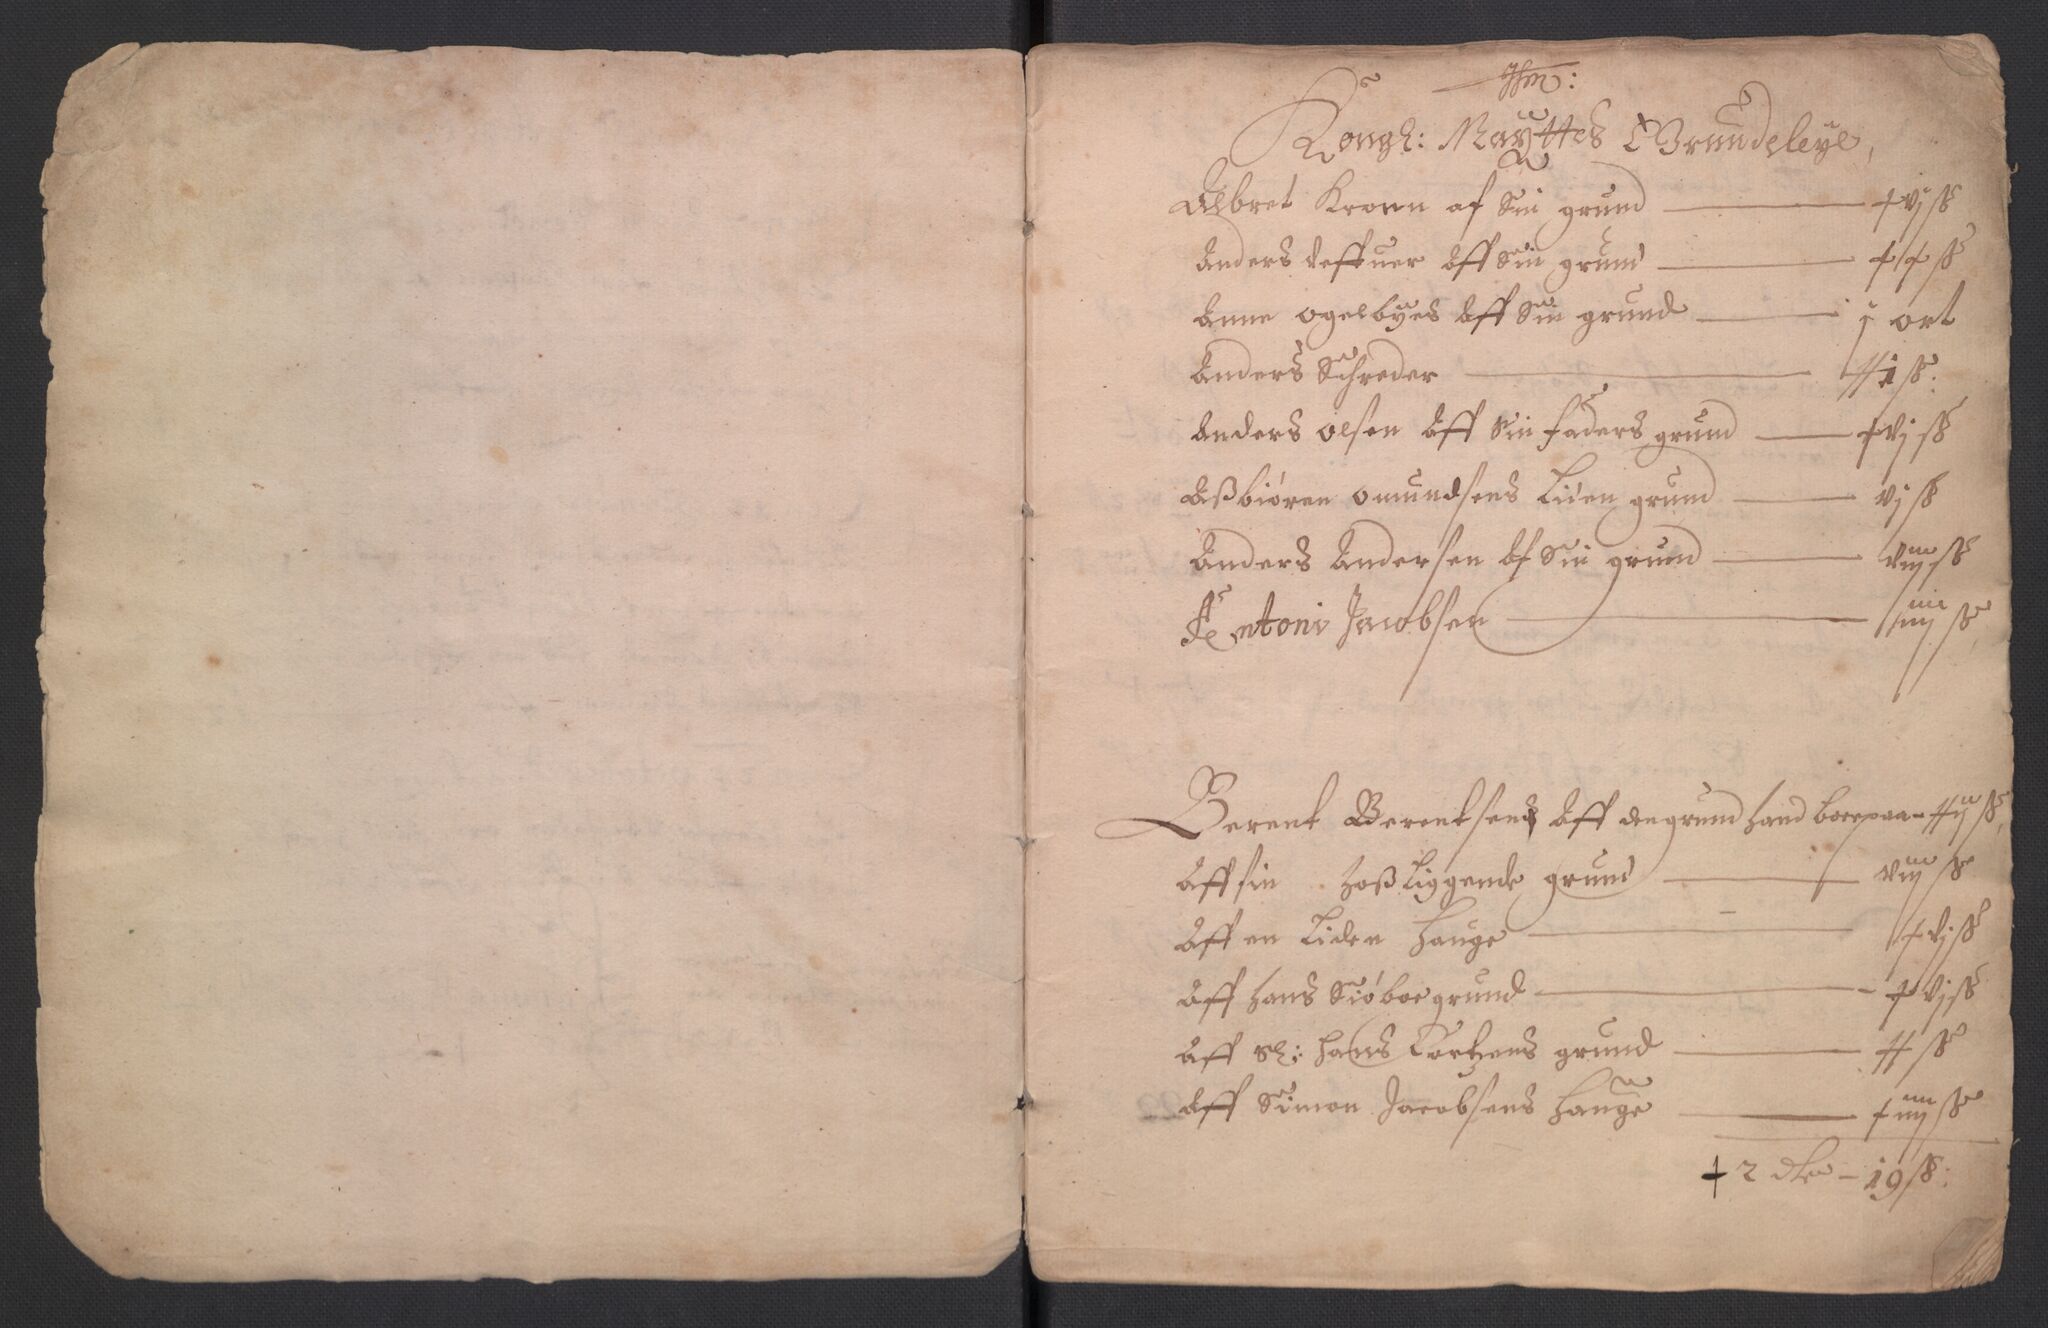 Ihm:
Kongl: Mayttes Grundeleye,
Albret Kronn af Sin grund — xvj ß
Anders deffuer Aff Sin grund — xx ß
Anne ogelbyes Aff Sin grund — j ort
Anders Schreder — xxi ß:
Anders olsen Aff Sin faders grund — xvj ß
Aßbiören omundsens Liden grund — vj ß
Anders Andersen Af Sin grund — viij ß
Antoni Jacobsen — xiiij ß
Berent Berentsens Aff den grund hand boer paa — xxij ß
Aff sin hoß liggende grund — viij ß
Aff en Liden hauge — xvj ß
Aff hans Siöboe grund — xvj ß
Aff Sl: hans Lortzens grund — xx ß
Aff Simon Jacobsens hauge — xiiij ß
2 dlr — 19 ß: